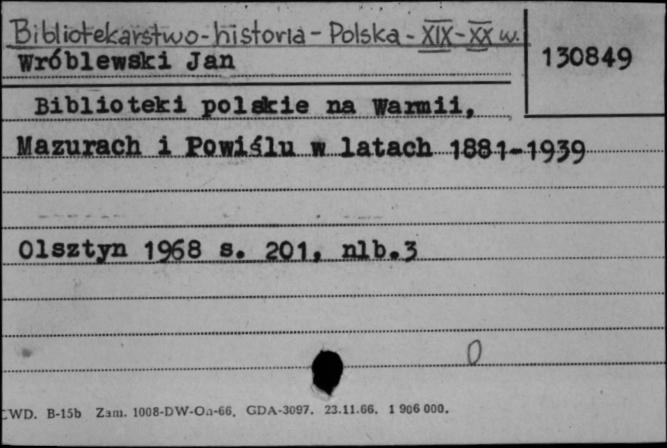 Bibliotekarstwo-historia-Polska-XIX-XX w.
Wróblewski Jan
130849
Biblioteki polskie na Warmii,
Mazurach i Powiślu w latach 1881-1939
Olsztyn 1968 s. 201, nlb.3
0
CWD. B-15b Zam. 1008-DW-Oa-66, GDA-3097. 23.11.66. 1 906 000.